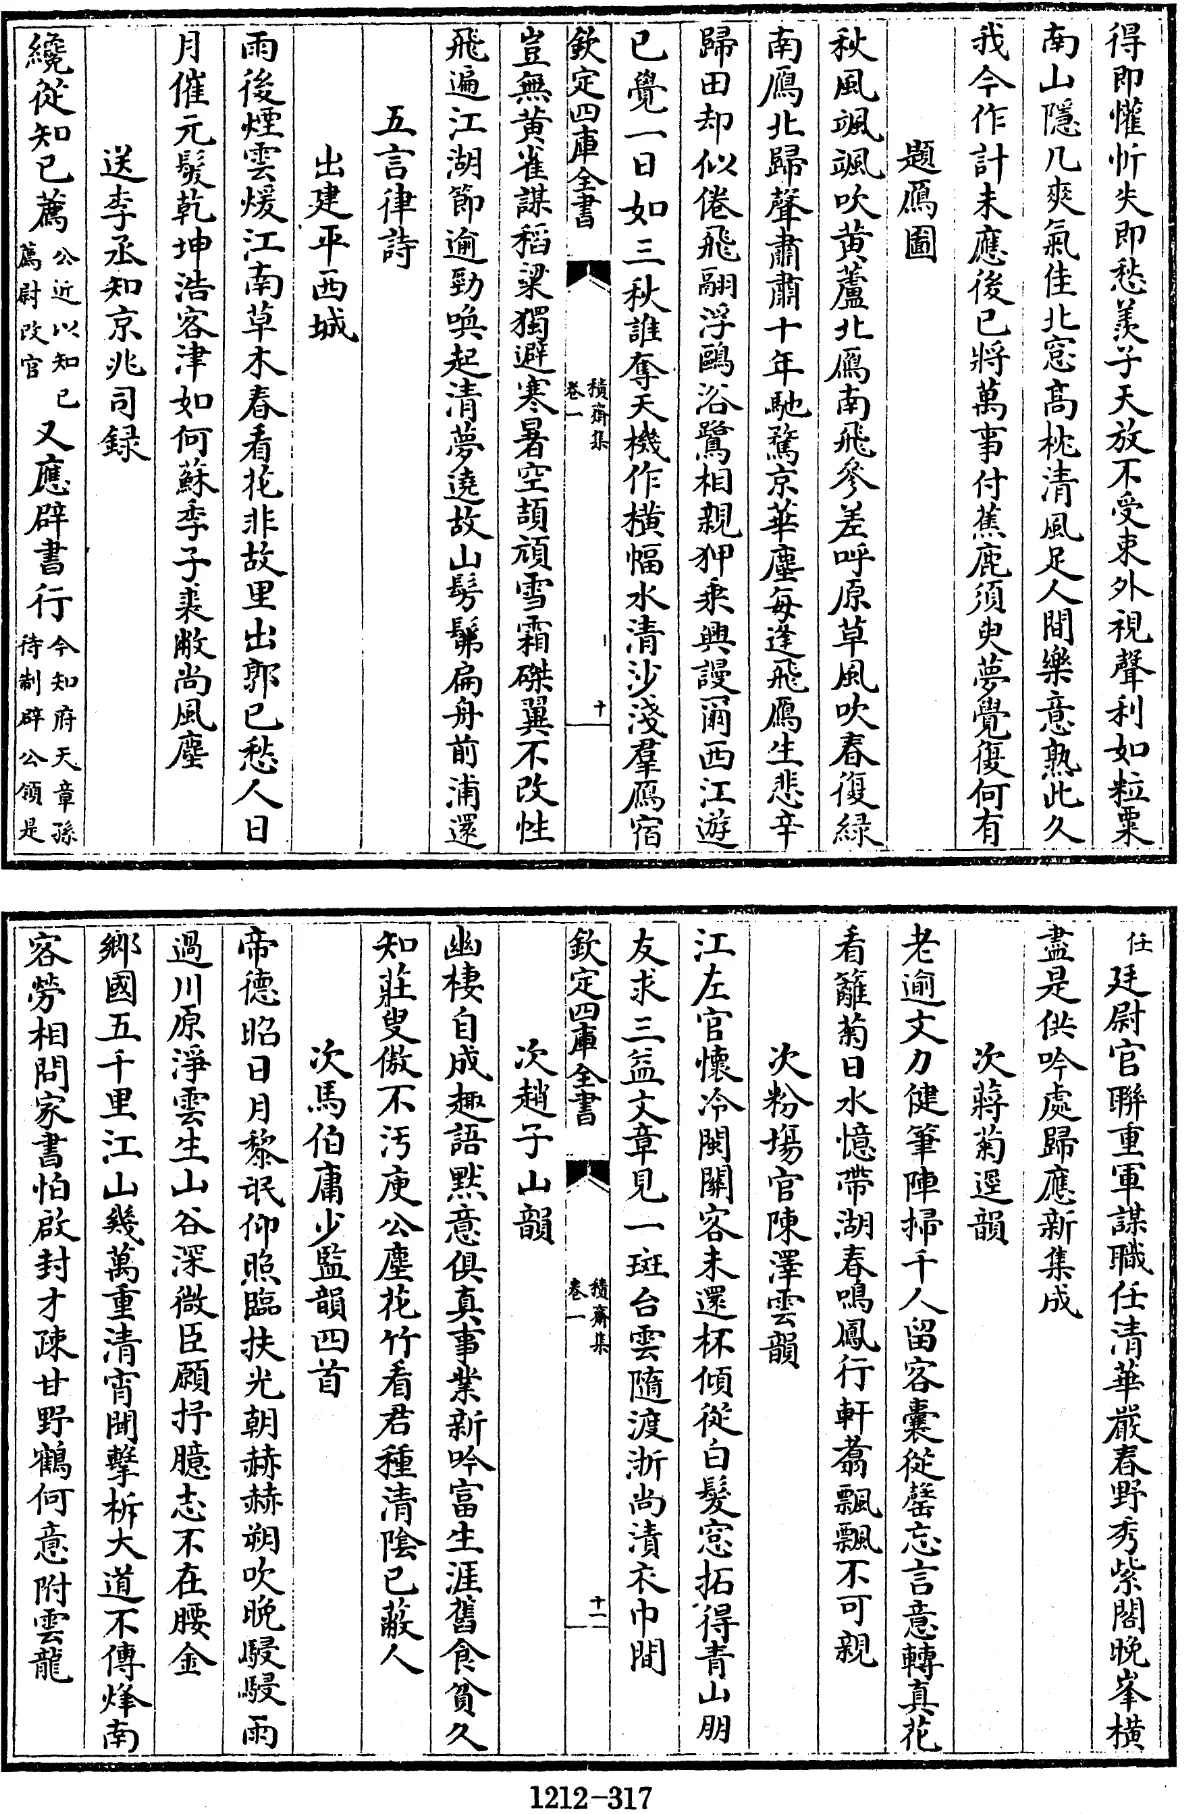 得即懽忻失即愁羨子天放不受束外視聲利如粒粟
南山隱几爽氣佳北窓髙枕清風足人間樂意熟此久
我今作計未應後已將萬事付蕉鹿須臾夢覺復何有
題鴈圖
秋風颯颯吹黄蘆北鴈南飛參差呼原草風吹春復緑
南鴈北歸聲肅肅十年馳騖京華塵每逢飛鴈生悲辛
歸田却似倦飛翮浮鷗浴鷺相親狎乘興謾爾西江遊
已覺一日如三秋誰奪天機作横幅水清沙淺羣鴈宿
欽定四庫全書
積齋集
卷一
十
豈無黄雀謀稻粱獨避寒暑空頡頏雪霜磔翼不改性
飛遍江湖節逾勁喚起清夢遶故山髣髴扁舟前浦還
五言律詩
出建平西城
雨後煙雲煖江南草木春看花非故里出郭已愁人日
月催元髪乾坤浩客津如何蘇季子裘敝尚風塵
送李丞知京兆司録
纔從知已薦公近以知已薦尉改官又應辟書行今知府天章孫待制辟公領是
任廷尉官聯重軍謀職任清華嚴春野秀紫閣晚峯横
盡是供吟處歸應新集成
次蔣菊逕韻
老逾文力健筆陣掃千人留客囊從罄忘言意轉真花
看籬菊日水憶帶湖春鳴鳳行軒翥飄飄不可親
次粉塲官陳澤雲韻
江左官懷冷閩關客未還杯傾從白髮窓拓得青山朋
友求三益文章見一斑台雲隨渡浙尚漬衣巾間
欽定四庫全書
積齋集
卷一
十一
次趙子山韻
幽棲自成趣語黙意俱真事業新吟富生涯舊食貧久
知莊叟傲不汚庾公塵花竹看君種清陰已蔽人
次馬伯庸少監韻四首
帝徳昭日月黎氓仰照臨扶光朝赫赫朔吹晩駸駸雨
過川原淨雲生山谷深微臣願抒臆志不在腰金
鄉國五千里江山幾萬重清宵聞擊柝大道不傳烽南
客勞相問家書怕啟封才疎甘野鶴何意附雲龍
1212-317